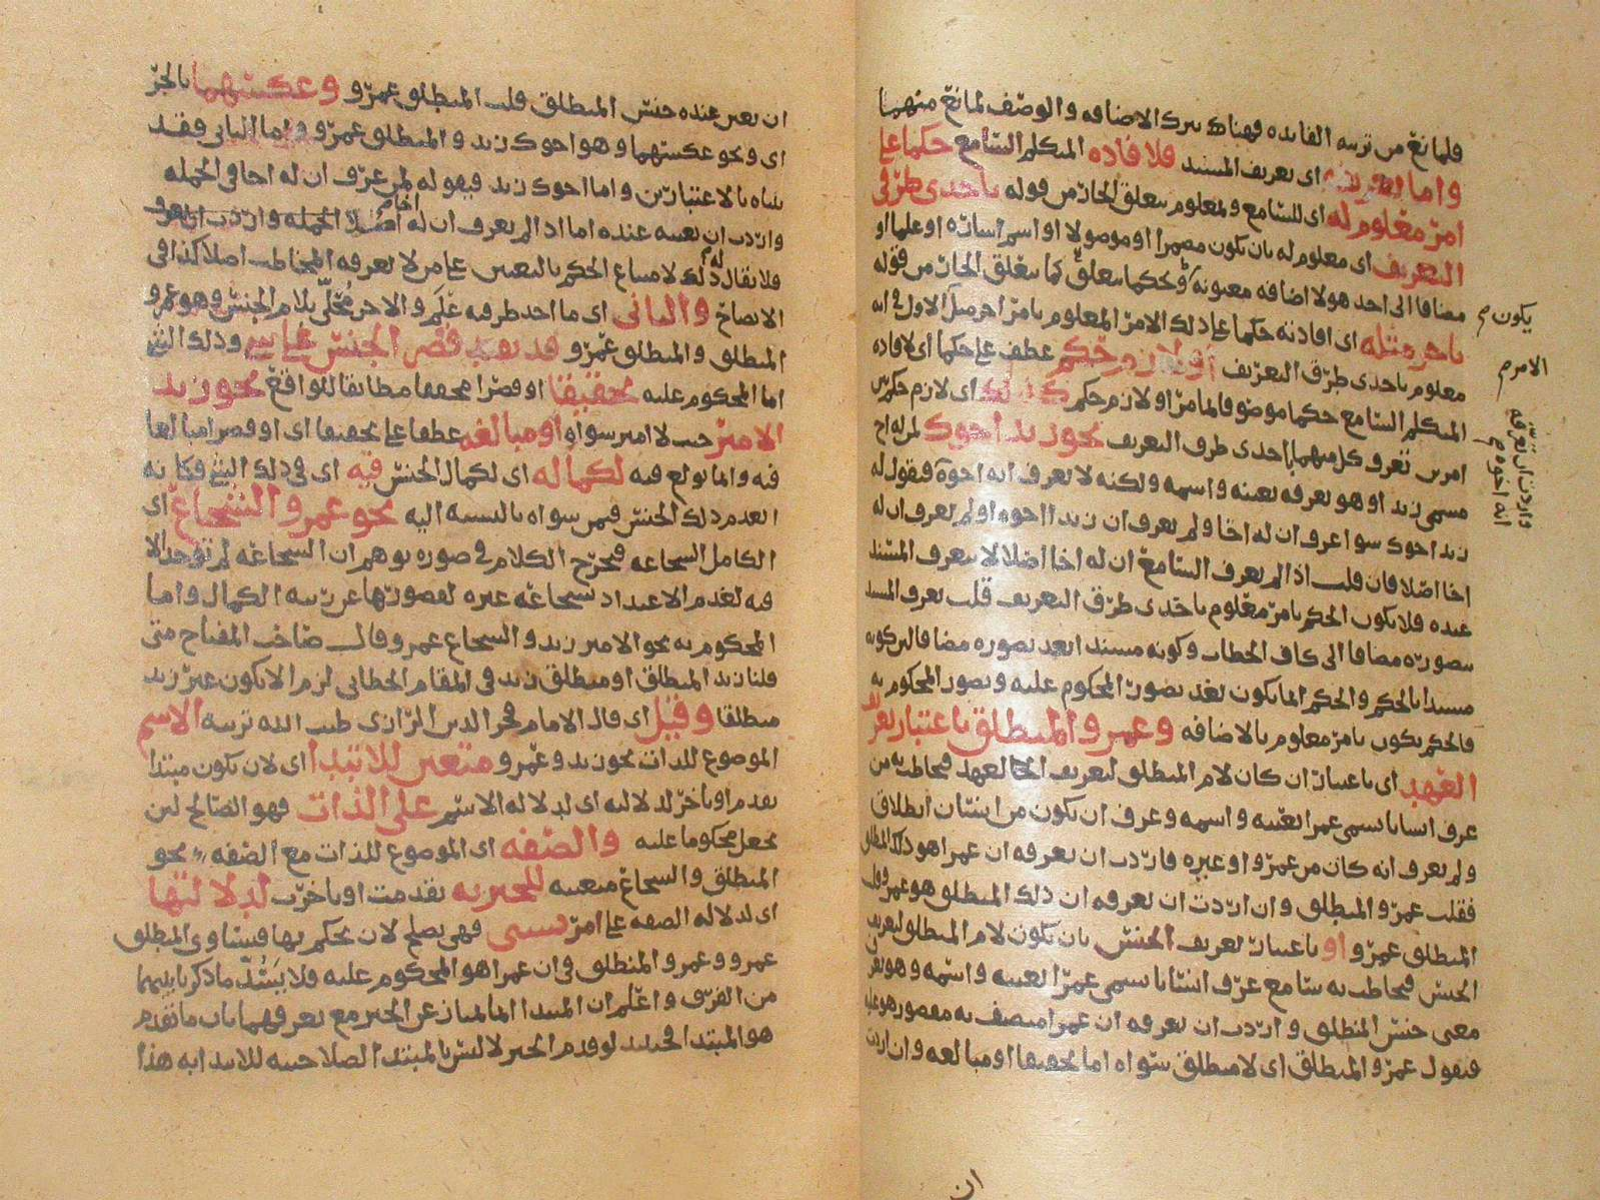 فلمانع من تربيه الفايده فهناك يترك الاضافه والوصف لمانع منهما
واما تعريفه اى تعريف المسند فلافاده المتكلم السامع حكما على
امر معلوم له اى للسامع ولمعلوم يتعلق الجار من قوله باحدى طرق
التعريف اى معلوم له بان يكون مضمرا او موصولا او اسم اشاره او علما او
مضافا الى احد هولا اضافه معنويه وحكما يتعلق كما يتعلق الجار من قوله
باخر مثله اى افادته حكما على ذلك الامر المعلوم بامر اخر مثل الاول فى انه
معلوم باحدى طرق التعريف او لازم حكم عطف على حكما اى لافاده
المتكلم السامع حكما موصوفا بامر او لازم حكم كذلك اى لازم حكم
امرين تعرف كل منهما باحدى طرق التعريف نحو زيد اخوك لمن له اخ
مسمى زيد او هو يعرفه بعينه واسمه ولكنه لا يعرف انه اخوه فتقول له
زيد اخوك سوا عرف ان له اخا ولم يعرف ان زيدا اخوه او لم يعرف ان له
اخا اصلا فان قلت اذا لم يعرف السامع ان له اخا اصلا لا يعرف المسند
عنده فلا يكون الحكم بامر معلوم باحدى طرق التعريف قلت تعرف المسند
بتصوره مضافا الى كاف الخطاب وكونه مسندا بعد تصوره مضافا
مسندا بالحكم والحكم انما يكون بعد تصور المحكوم عليه وتصور المحكوم به
فالحكم يكون بامر معلوم بالاضافه وعمرو المنطلق باعتبار تعريف
العهد اى باعتبار ان كان لام المنطلق لتعريف العهد فيخاطب به من
عرف انسانا يسمى عمرا بعينه واسمه وعرف ان يكون من انسان انطلاق
ولم يعرف انه كان من عمرو او غيره فاردت ان تعرفه ان عمرا هو ذلك المنطلق
فقلت عمرو المنطلق وان اردت ان تعرفه ان ذلك المنطلق هو عمرو قلت
المنطلق عمرو او باعتبار تعريف الجنس بان يكون لام المنطلق لتعريف
الجنس فيخاطب به سامع عرف انسانا يسمى عمرا بعينه واسمه وهو يعرف
معنى جنس المنطلق واردت ان تعرفه ان عمرا متصف به مقصور هو عليه
فتقول عمرو المنطلق اى لا منطلق سواه اما تحقيقا او مبالغه وان اردت
يكون م
الامر م
واردت ان تعرفه
انه اخوه م
ان
ان تعين عنده جنس المنطلق قلت المنطلق عمرو وعكسهما بالجر
اى ونحو عكسهما وهو اخوك زيد والمنطلق عمرو واما الثانى فقد
بيناه بالاعتبارين واما اخوك زيد فيقوله لمن عرف ان له اخا فى الجمله
واردت ان تعينه عنده اما اذا لم يعرف ان له اخا اصلا
فلا يقال له ذلك لامتناع الحكم بالتعين على من لا يعرفه المخاطب اصلا كذا فى
الايضاح والثانى اى ما احد طرفيه علم والاخر محلى بلام الجنس وهو عمرو
المنطلق والمنطلق عمرو قد يفيد قصر الجنس على شى وذلك الشى
اما المحكوم عليه تحقيقا او قصرا محققا مطابقا للواقع نحو زيد
الامير حيث لا امير سواه او مبالغه عطفا على تحقيقا اى او قصرا مبالغا
فيه وانما بولغ فيه لكماله اى لكمال الجنس فيه اى فى ذلك الشى فكانه
انعدم ذلك الجنس فيمن سواه بالنسبه اليه نحو عمرو الشجاع اى
الكامل الشجاعه فيخرج الكلام فى صوره توهم ان الشجاعه لم توجد الا
فيه لعدم الاعتداد بشجاعه غيره لقصورها عن رتبه الكمال واما
المحكوم به نحو الامير زيد والشجاع عمرو قال صاحب المفتاح متى
قلنا زيد المنطلق او منطلق زيد فى المقام الخطابى لزم الا يكون غير زيد
منطلقا وقيل اى قال الامام فخر الدين الرازى طيب الله تربته الاسم
الموضوع للذات نحو زيد وعمرو متعين للابتدا اى لان يكون مبتدا
تقدم او تاخر لدلالته اى لدلاله الاسم على الذات فهو الصالح لان
يجعل محكوما عليه والصفه اى الموضوع للذات مع الصفه نحو
المنطلق والشجاع متعينه للخبريه تقدمت او تاخرت لدلالتها
اى لدلاله الصفه على امر نسبى فهى يصلح لان يحكم بها فيتساوى المنطلق
عمرو وعمرو المنطلق فى ان عمرا هو المحكوم عليه فلا يتم ما ذكرنا بينهما
من الفرق واعلم ان المبتدا انما يمتاز عن الخبر مع تعرفهما بان ما تقدم
هو المبتدا لو قدم الخبر لالتبس بالمبتدا لصلاحيته للابتدا به هذا